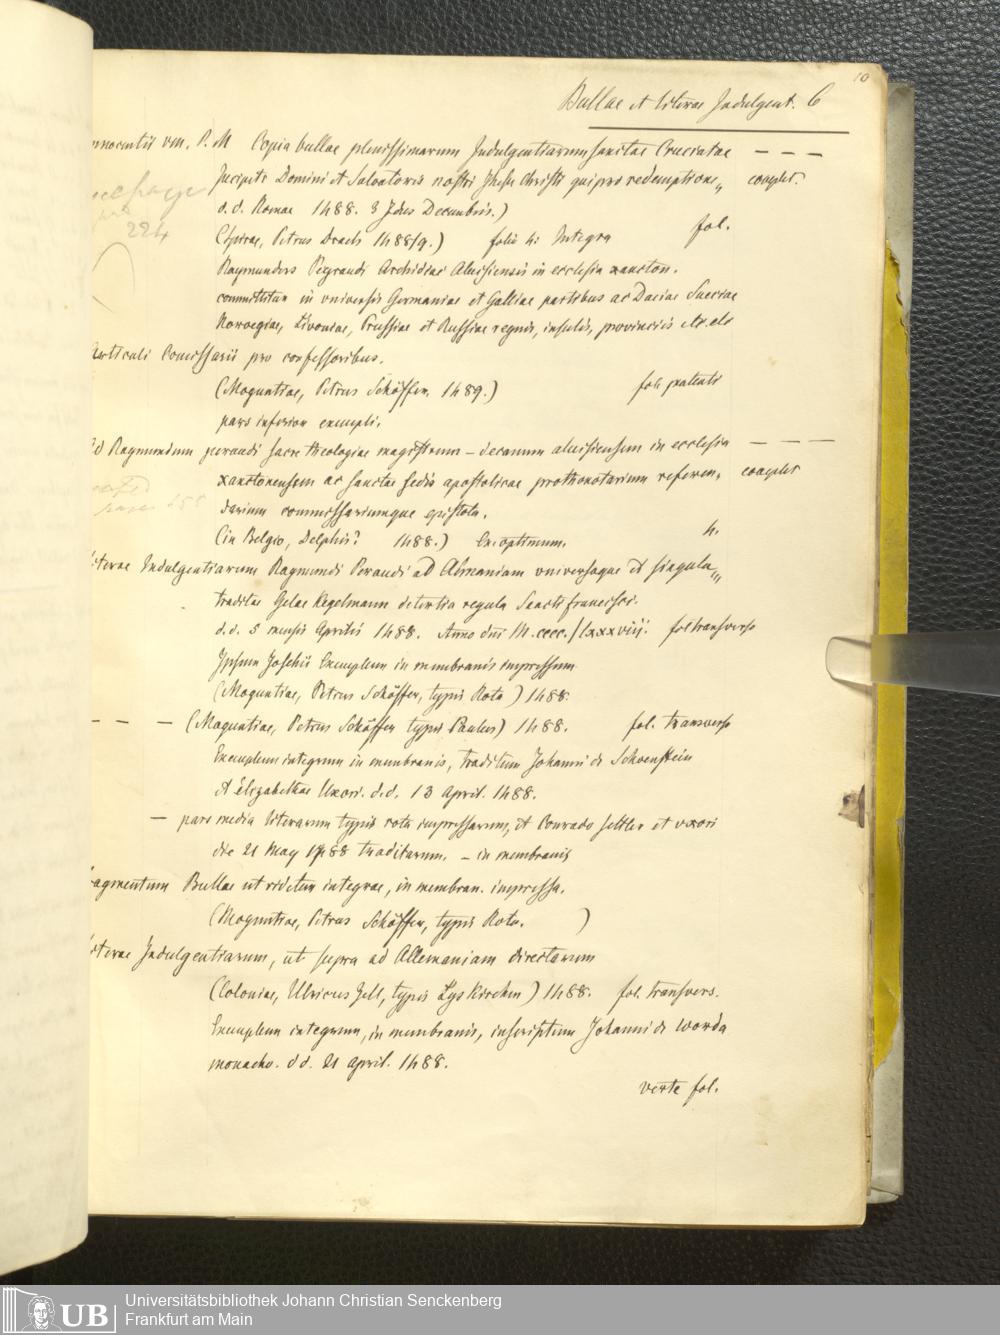 10
Bullae et literae Indulgent. 6
nnocentii VIII. P. M Copia bullae plenissimarum Indulgentiarum sanctae Cruciatae — — —
Incipit: Domini et Salvatoris nostri Jhesu Christi qui pro redemptione„ complet.
d. d. Romae 1488. 3 Idus Decembris.)
224
(Spirae, Petrus Drach 1488/9.) folia 4: Integra fol.
Raymundus Peyraudi Archidiac Alnisiensis in ecclesia xancton.
committitur in universis Germaniae et Galliae partibus ac Daciae Sueciae
Norvegiae, Livoniae, Prussiae et Russiae regnis, insulis, provinciis etc. etc
Articuli Comissarii pro confessoribus.
(Moguntiae, Petrus Schöffer. 1489.) fol. patenti
pars inferior exempli.
Ad Raymundum peraudi sacre theologiae magistrum – decanum alnisiensem in ecclesia — — —
xanctonensem ac sanctae sedis apostolicae prothonotarium referen„ complet
darium commissariumque epistola.
(in Belgio, Delphis? 1488.) Ex: optimum. 4.
iterae Indulgentiarum Raymundi Peraudi ad Almaniam universaque et singula„
traditae Gelae Kegelmann de tertia regula Sancti francisci.
d. d. 5 mensis Aprilis 1488. Anno dni M.cccc./lxxxviij. fol transverso
Ipsum Joschii Exemplum in membranis impressum
(Moguntiae, Petrus Schöffer, typis Rota) 1488.
— — — (Moguntiae, Petrus Schöffer typis Paulus) 1488. fol. transverso
Exemplum integrum in membranis, traditum Johanni de Schoenstein
et Elizabethae Uxori. d.d. 13 April. 1488.
— pars media literarum typis rota impressarum, et Conrado settler et uxori
die 21 May 1488 traditarum. – in membranis
ragmentum Bullae ut videtur integrae, in membran. impressa.
(Moguntiae, Petrus Schöffer, typis Rota. )
iterae Indulgentiarum, ut supra ad Allemaniam directarum
(Coloniae, Ulricus Zell, typis Lyskirchen) 1488. fol. transvers.
Exemplum integrum, in membranis, inscriptum Johanni de Worda
monacho. d d. 21 April. 1488.
verte fol.
UB
Universitätsbibliothek Johann Christian Senckenberg
Frankfurt am Main